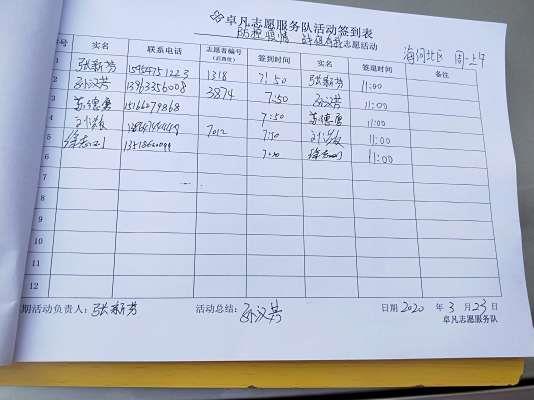 卓凡志愿服务队活动签到表
防控疫情 志愿活动
海河北区 周一上午
号 实名 联系电话 志愿者编号 签到时间 实名 签退时间 备注
(后四位)
1 张新芳 15454751223 1318 7:50 张新芳 11:00
2 孙汉芳 13963356008 3874 7:50 孙汉芳 11:00
3 苏德勇 15166079868 7:50 苏德勇 11:00
4 7012 7:50 11:00
5 7:50 11:00
6
7
8
9
10
11
12
期活动负责人: 张新芳 活动总结: 孙汉芳 日期 2020 年 3 月 23 日
卓凡志愿服务队